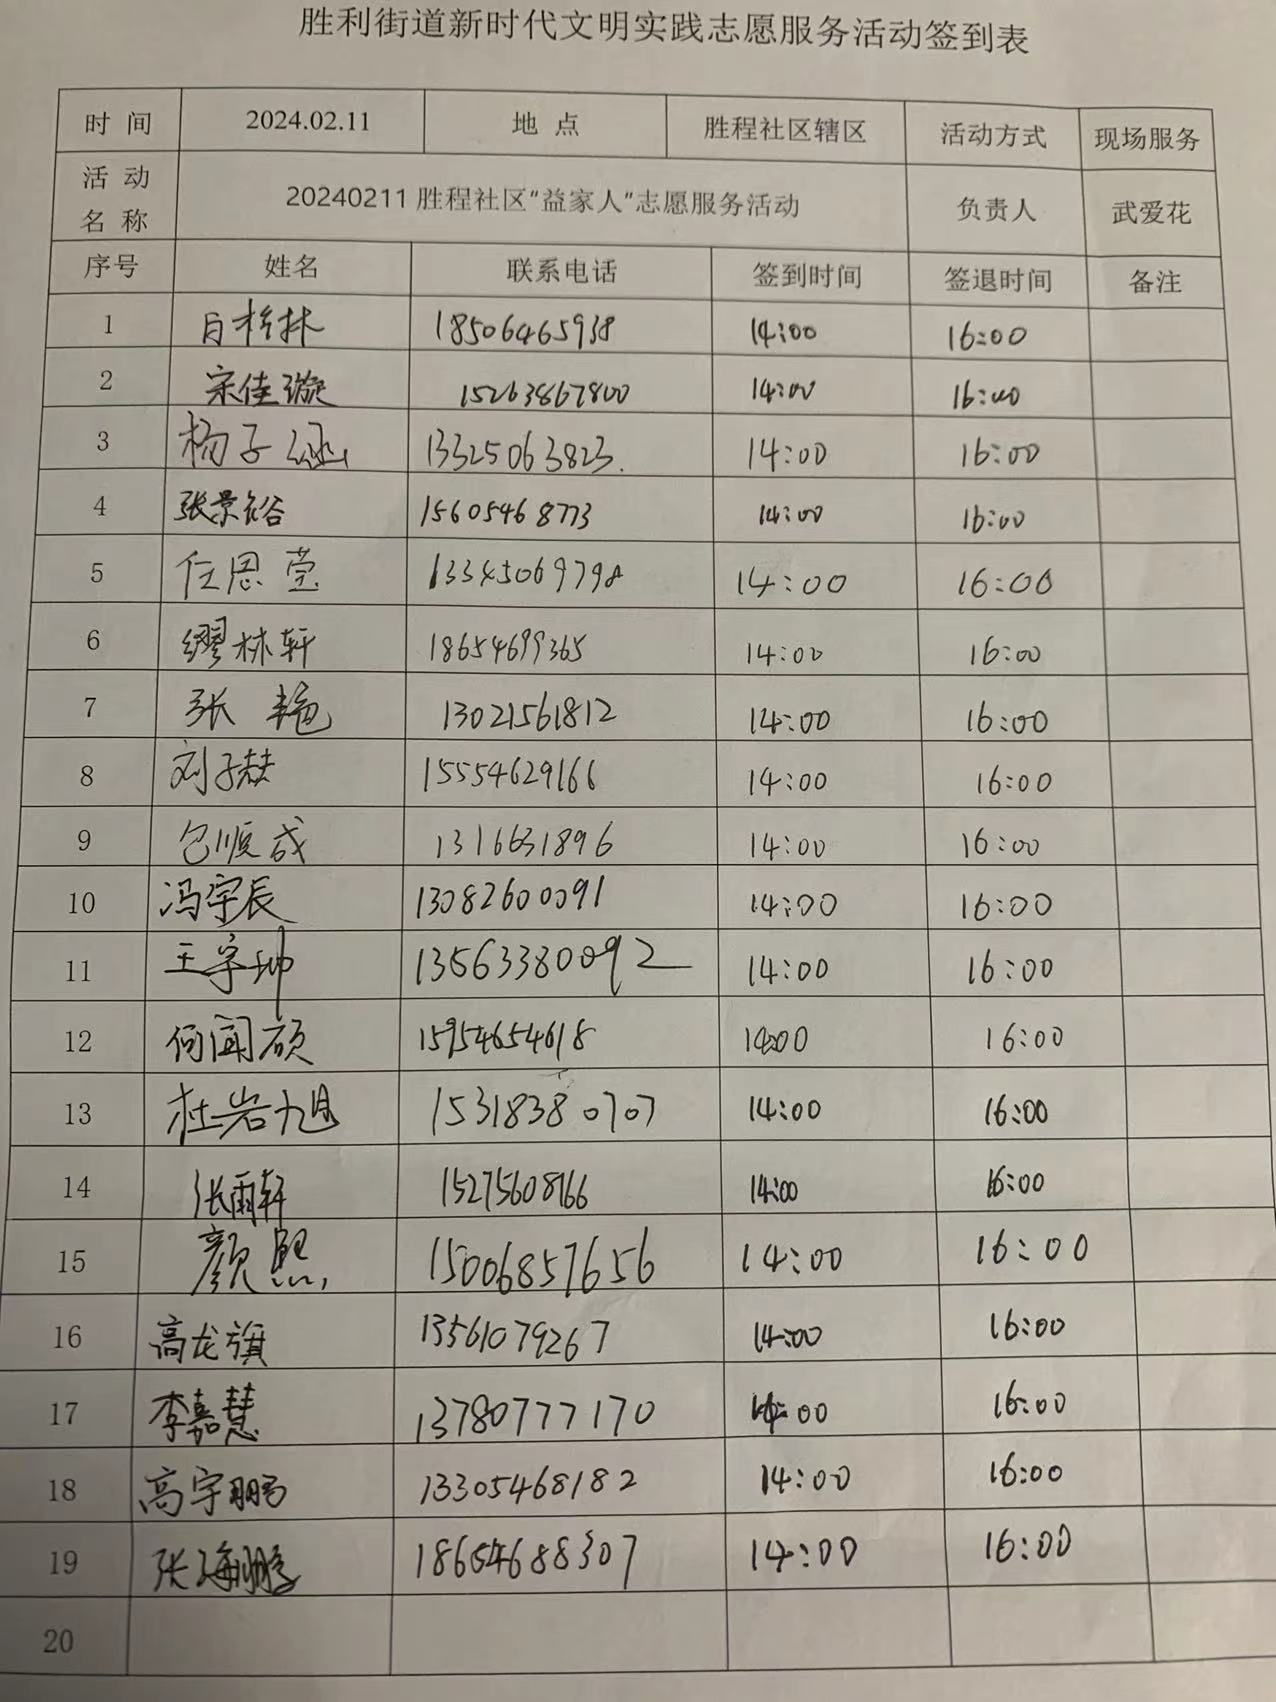 胜利街道新时代文明实践志愿服务活动签到表
时 间 2024.02.11 地 点 胜程社区辖区 活动方式 现场服务
活 动 名 称 20240211胜程社区“益家人”志愿服务活动 负责人 武爱花
序号 姓名 联系电话 签到时间 签退时间 备注
1 18506465938 14:00 16:00
2 宋佳璇 15263867800 14:00 16:00
3 杨子涵 13325063823. 14:00 16:00
4 张景裕 15605468773 14:00 16:00
5 任思莹 13345069798 14:00 16:00
6 缪林轩 18654699365 14:00 16:00
7 张 艳 13021561812 14:00 16:00
8 刘子赫 15554629166 14:00 16:00
9 包顺成 1316631896 14:00 16:00
10 冯宇辰 13082600091 14:00 16:00
11 王宇坤 13563380092 14:00 16:00
12 何闻硕 15954654618 14:00 16:00
13 杜岩旭 15318380707 14:00 16:00
14 张雨轩 15275608166 14:00 16:00
15 颜煦 15006857656 14:00 16:00
16 高龙旗 13561079267 14:00 16:00
17 李嘉慧 13780777170 14:00 16:00
18 高宇鹏 13305468182 14:00 16:00
19 张海鹏 18654688307 14:00 16:00
20